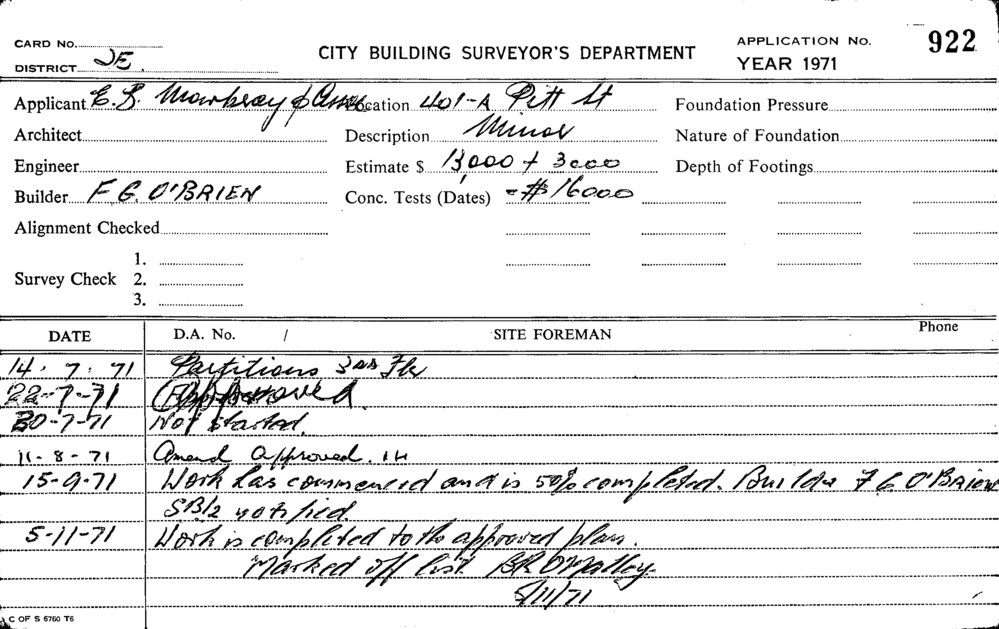 CARD No.
DISTRICT JE.
CITY BUILDING SURVEYOR'S DEPARTMENT
APPLICATION No. 922
YEAR 1971
Applicant E. S. Mowbray & Assoc Location 401-A Pitt St Foundation Pressure
Architect Description Minor Nature of Foundation
Engineer Estimate $ 13,000 + 3000 Depth of Footings
Builder F G. O'BRIEN Conc. Tests (Dates) = $16000
Alignment Checked
1.
Survey Check 2.
3.
DATE D.A. No. / SITE FOREMAN Phone
14. 7. 71 Partitions 3rd Flr
22-7-71 Approved
30-7-71 Not started.
11-8-71 Amend approved.
15-9-71 Work has commenced and is 50% completed. Builder F G O'BRIEN
SB/2 notified.
5-11-71 Work is completed to the approved plan.
Marked off list. BR O'Malley.
5/11/71
C OF S 6760 T6